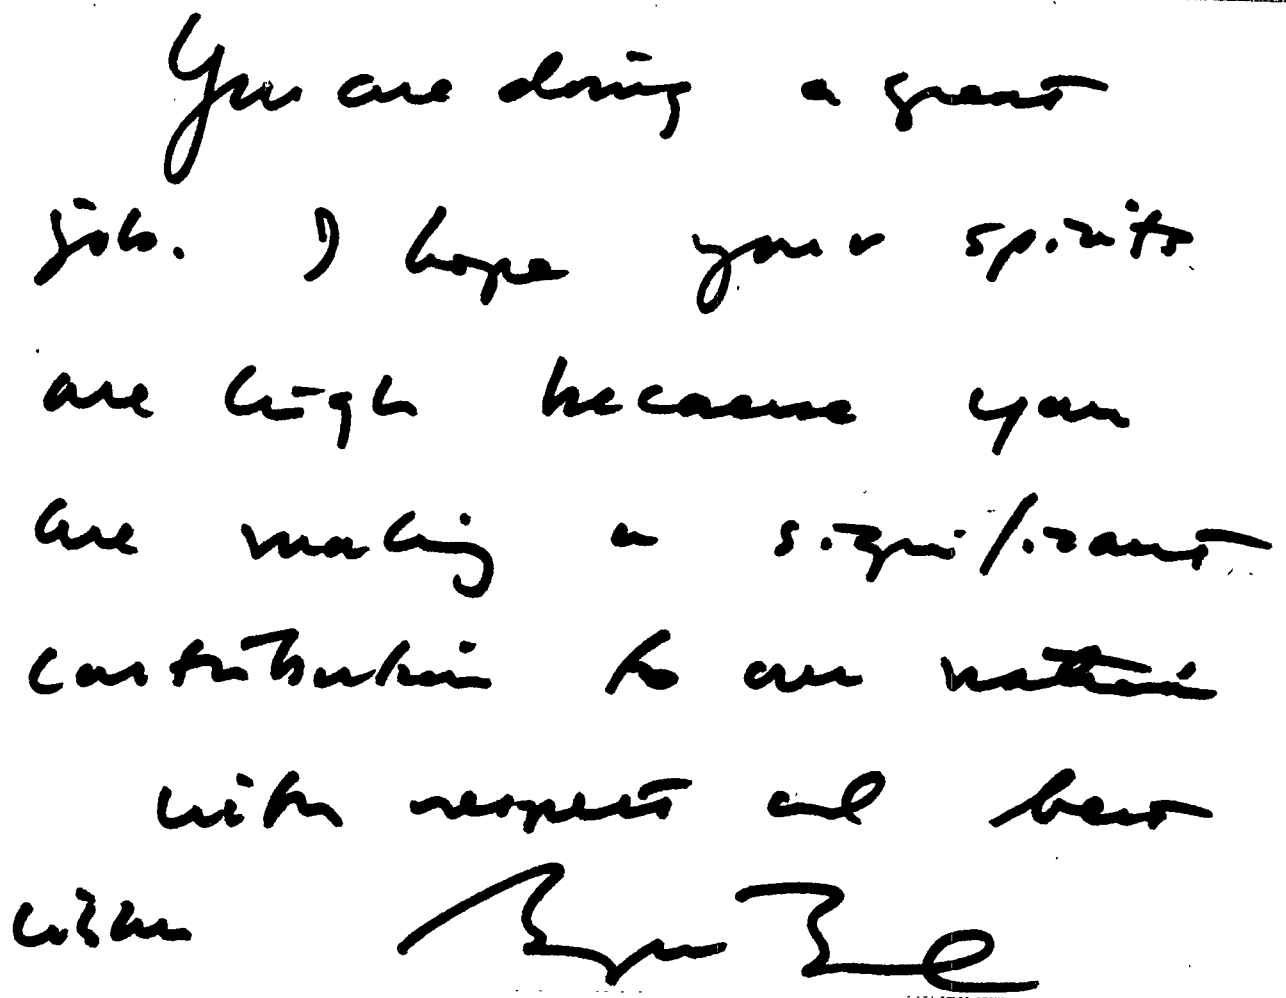 You are doing a great
job. I hope your spirits
are high because you
are making a significant
contribution to our nation
with respect and best
wishes